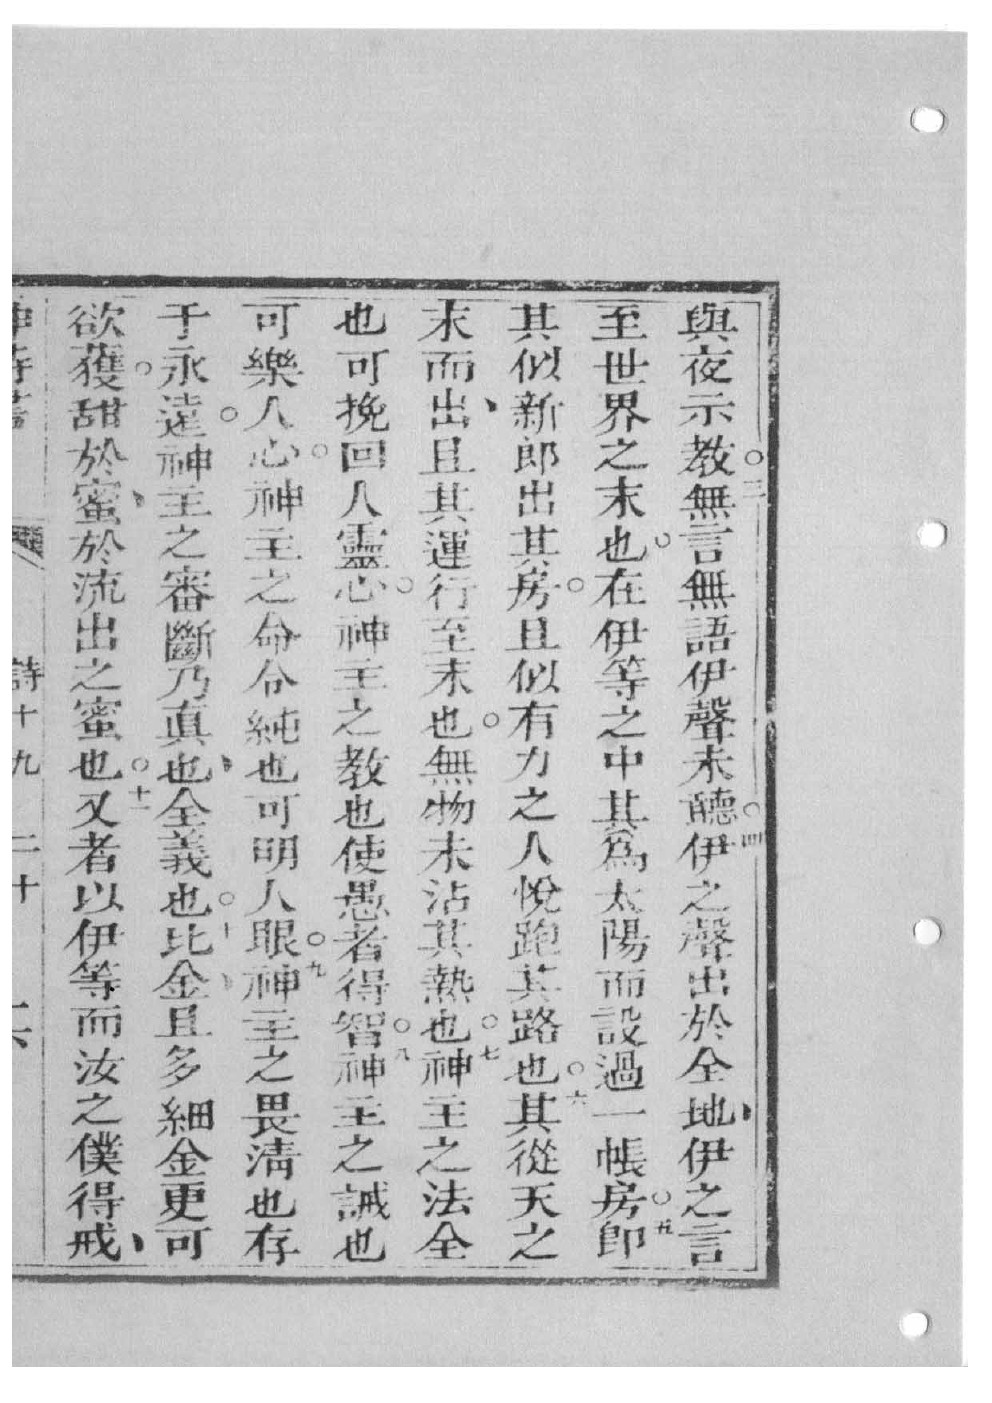 與夜示教○三無言無語伊聲未聽○四伊之聲出於全地、伊之言
至世界之末也○在伊等之中其爲太陽而設過一帳房○五即
其似新郎出其房○且似有力之人悅跑其路也○六其從天之
末而出、且其運行至末也○無物未沾其熱也○七神主之法全
也可挽回人靈心○神主之教也使愚者得智○八神主之誡也
可樂人心○神主之命令純也可明人眼○九神主之畏淸也存
于永遠○神主之審斷乃眞也、全義也○十比金、且多細金更可
欲獲○甜於蜜、於流出之蜜也○十一又者以伊等而汝之僕得戒、
神詩書 詩十九 二十 六